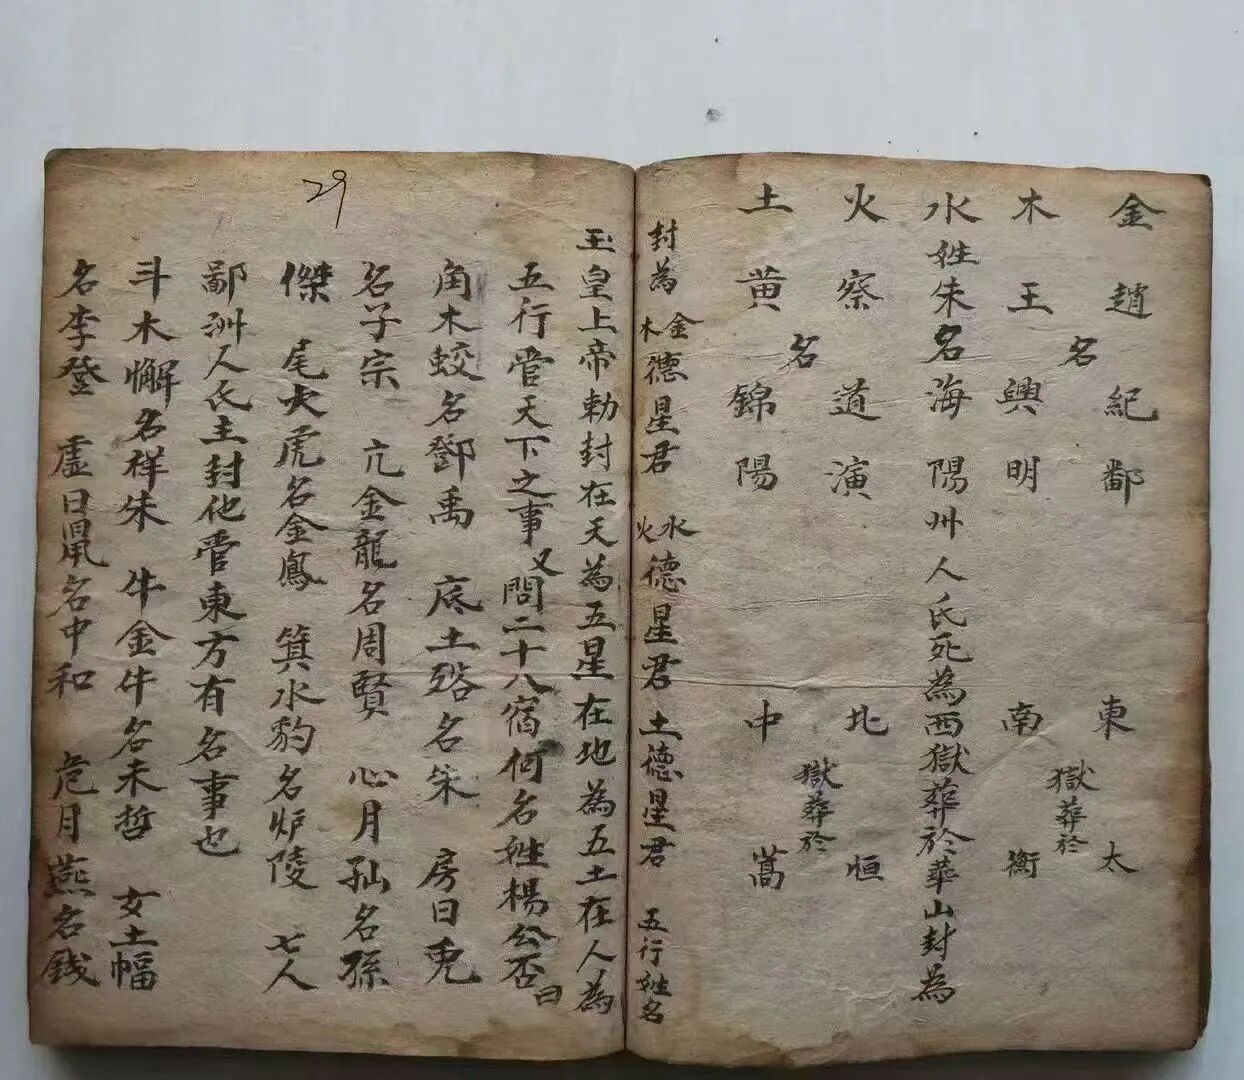 金 趙 紀鄱 東 太
名 獄葬於
木 王 興明 南 衡
水姓朱名海陽州人氏死為西獄葬於華山封為
火 察 道演 北 恒
名 獄葬於
土 黄 錦陽 中 嵩
封為金木德星君 水火德星君 土德星君 五行姓名
玉皇上帝勅封在天為五星在地為五土在人為
五行管天下之事又問二十八宿何名姓楊公否曰
角木蛟名鄧禹 底土狢名朱 房日兎
名子宗 亢金龍名周賢 心月狐名孫
傑 尾火虎名金鳳 箕水豹名炉陵 七人
鄱洲人氏主封他管東方有名事也
斗木懈名祥朱 牛金牛名未哲 女土幅
名李登 虚日鼠名中和 危月燕名銭
29